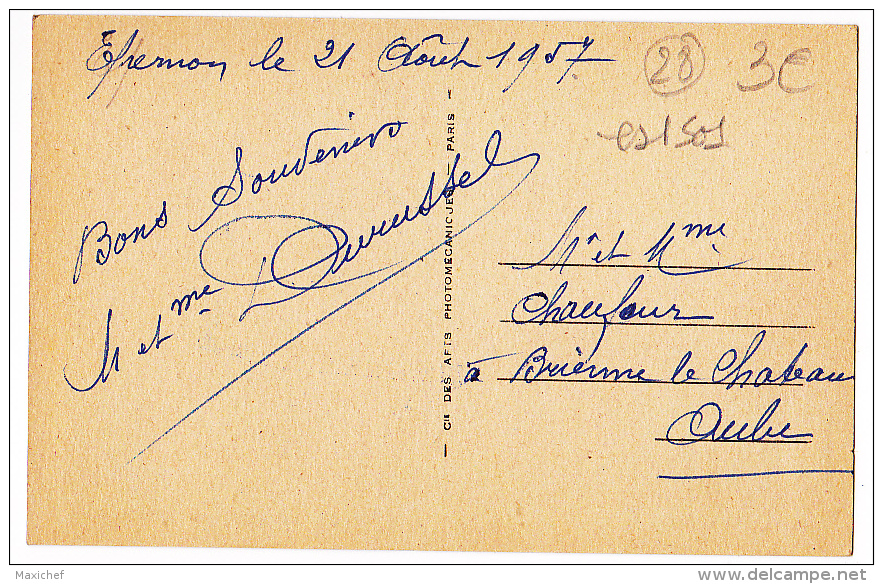 Epernon le 21 Août 1957
28
3€
Bons Souvenirs
M et Mme
Cie DES ARTS PHOTOMECANIQUES PARIS
Mr et Mme
Chaufour
à Brienne le Chateau
Aube
Maxichef
delcampe.net